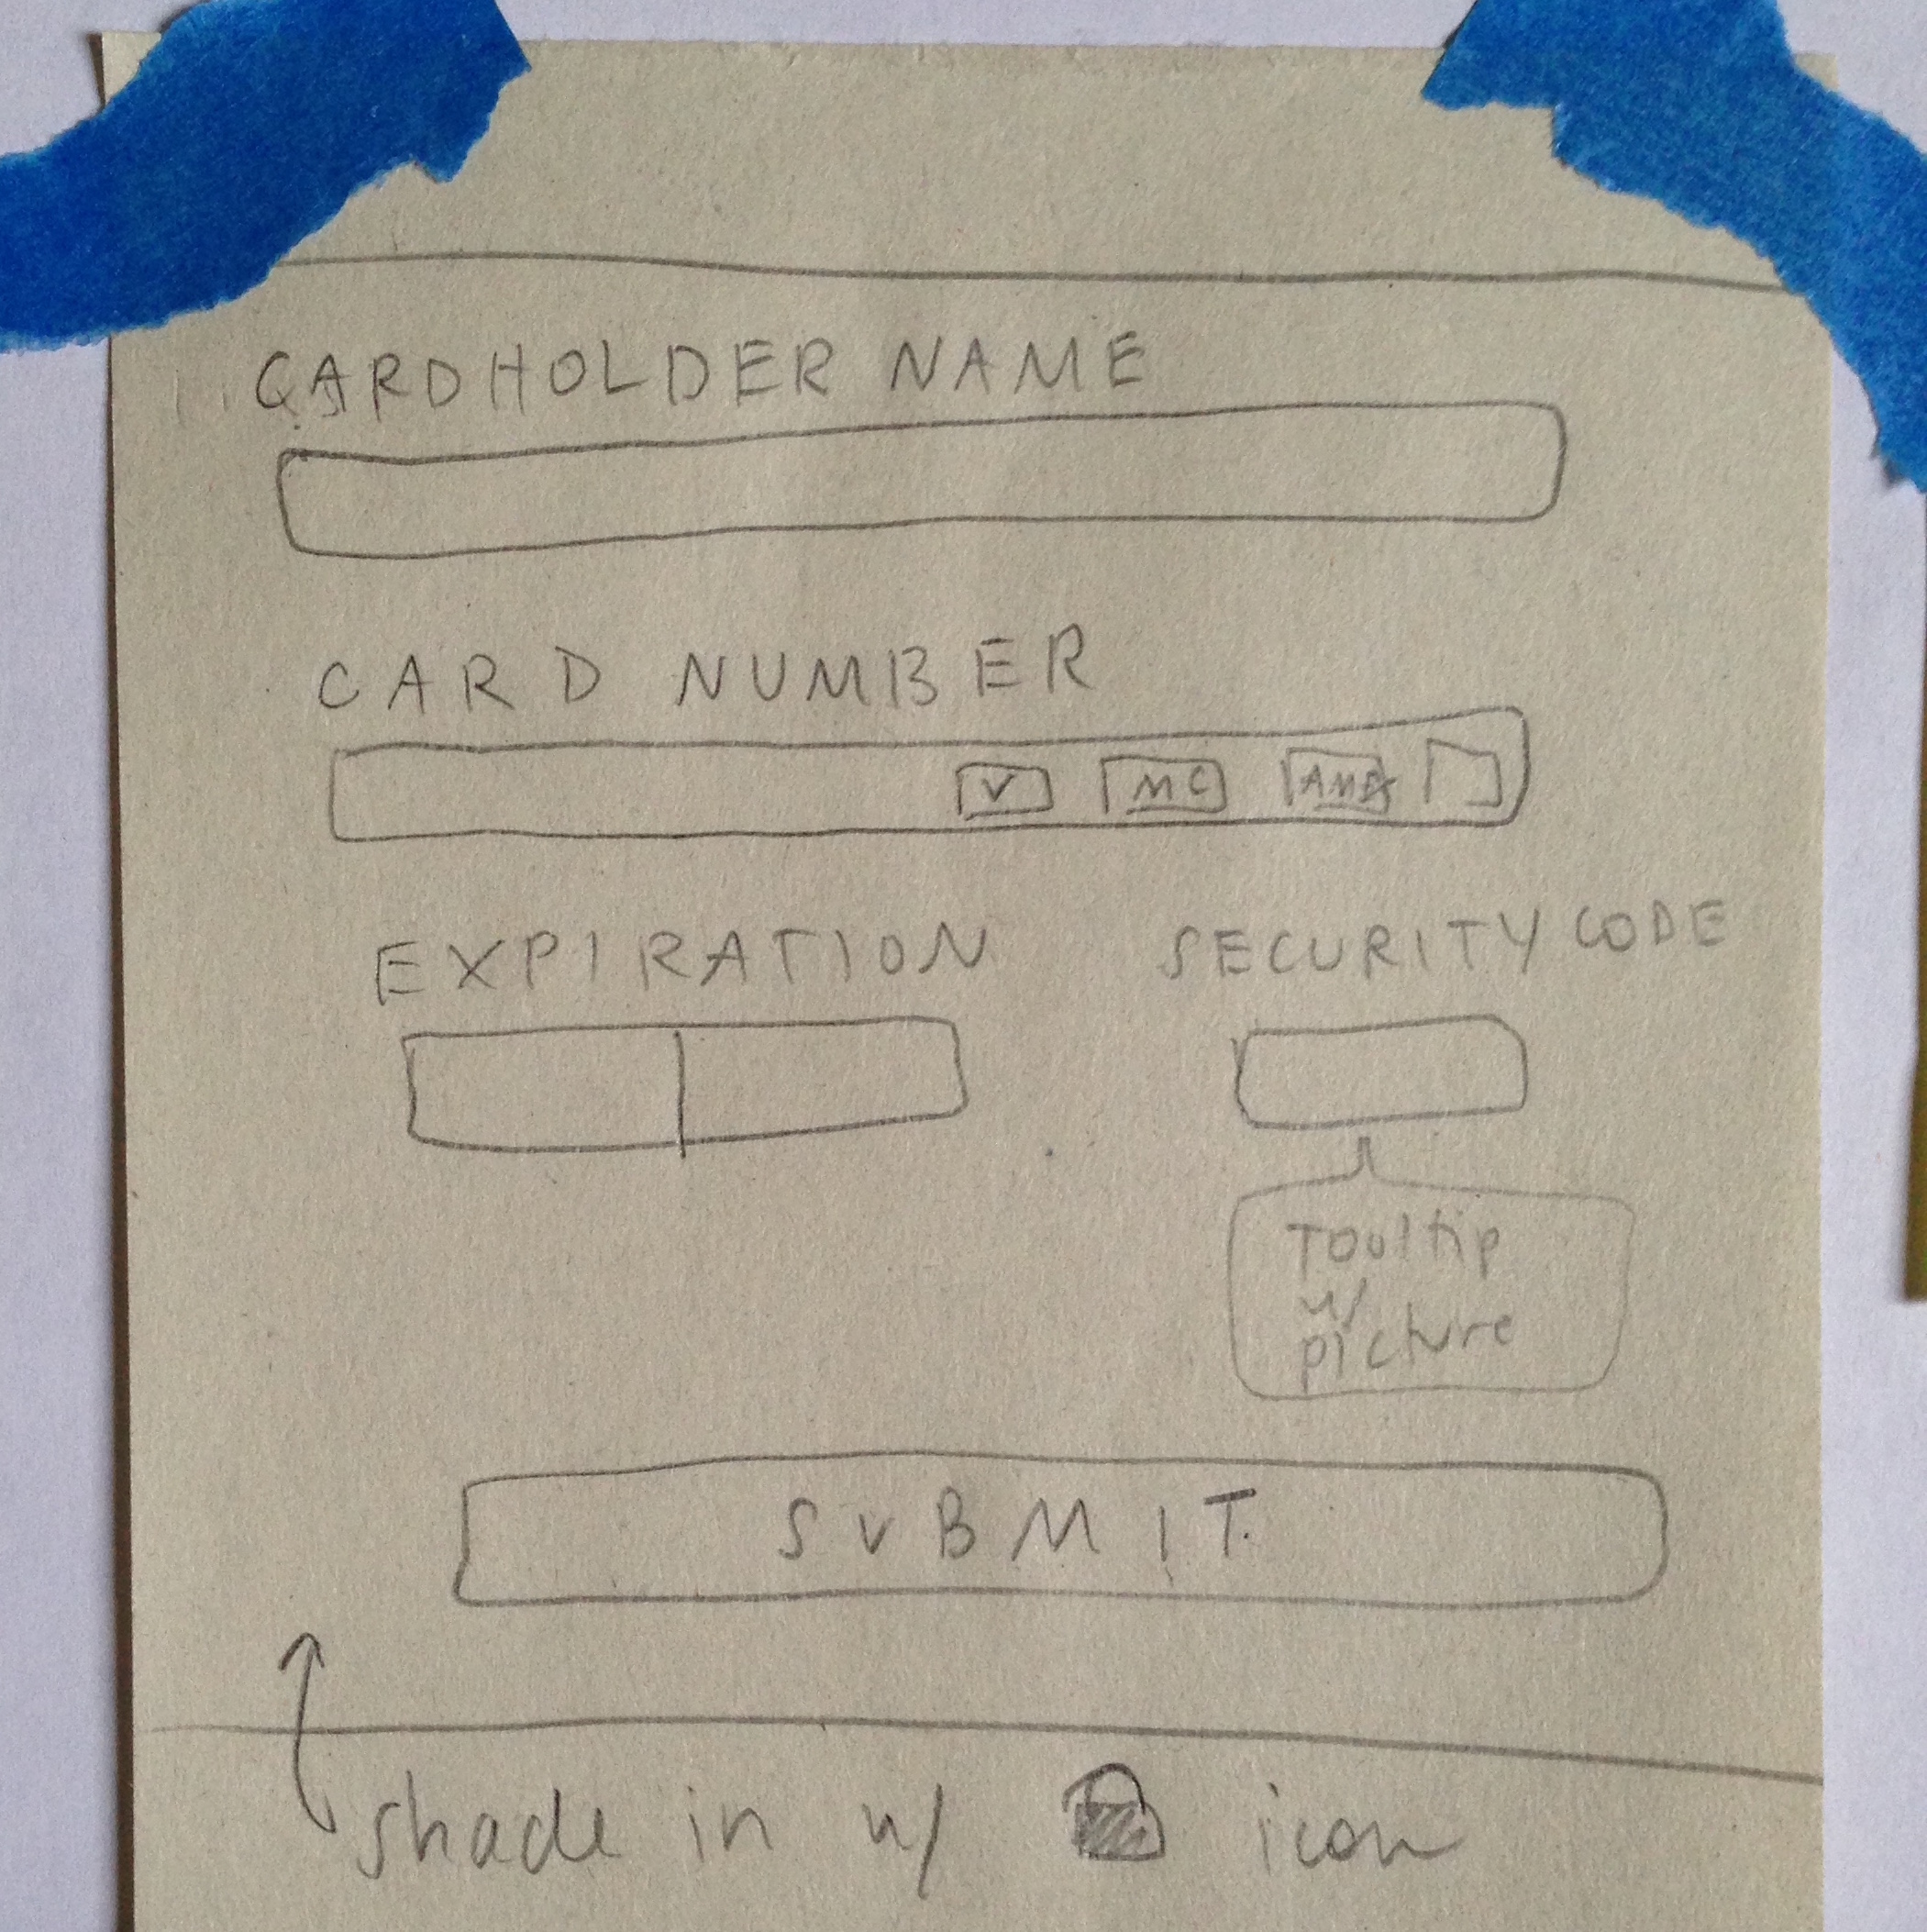 CARDHOLDER NAME
CARD NUMBER
V MC AMEX
EXPIRATION SECURITY CODE
Tooltip
w/
picture
SUBMIT
shade in w/ icon